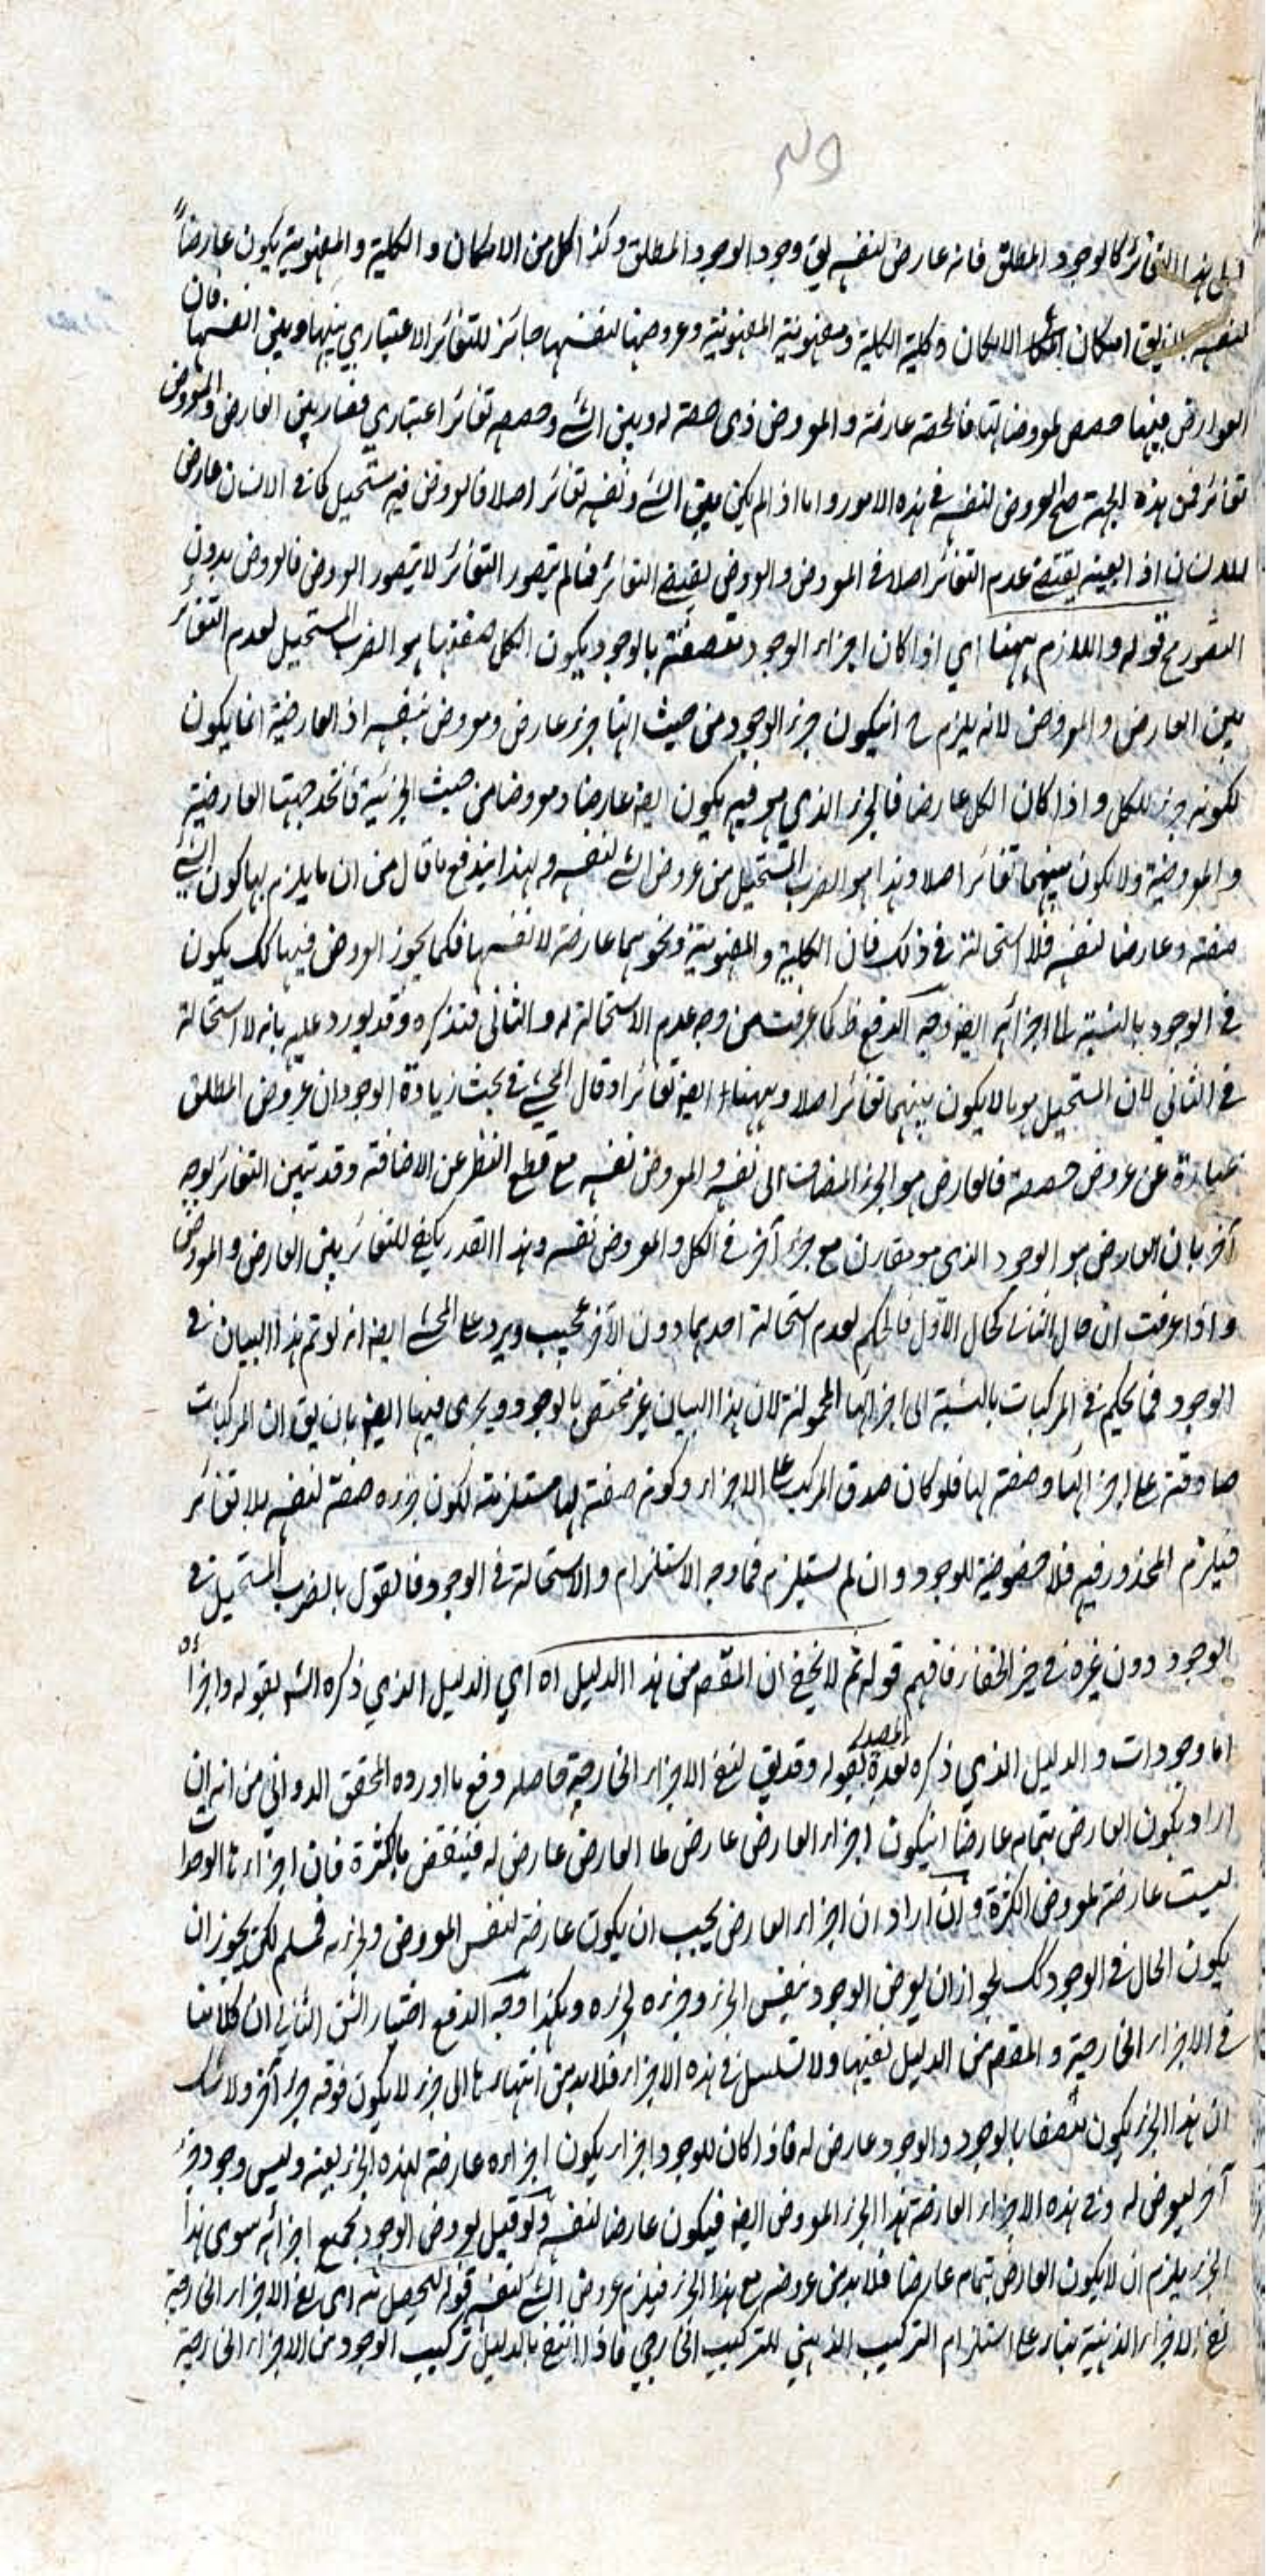 هذا التغائر كالوجود المطلق فانه عارض لنفسه يق وجود الوجود المطلق وكذا كل من الامكان والكلية والمفهومية يكون عارضاً
لنفسه يق امكان الامكان وكلية الكلية ومفهومية المفهومية وعروضها لنفسها جائز للتغائر الاعتباري بينها وبين انفسها فان
العوارض فيها حصص لمعروضاتها فالحصة عارضة والمعروض ذي حصة له وبين الشئ وحصصه تغائر اعتباري فصار بين العارض والمعروض
تغائر فمن هذه الجهة صح العروض لنفسه في هذه الامور واما اذا لم يكن بين الشئ ونفسه تغائر اصلا فالعروض فيه مستحيل كما في الانسان عارض
للانسان اذ العينية يقتضي عدم التغائر اصلا في المعروض والعروض يقتضي التغائر فما لم يتصور التغائر لا يتصور العروض فالعروض بدون
التصور مح قوله واللازم ههنا اي اذا كان اجزاء الوجود متصفة بالوجود يكون الكل صفة بها هو الضرب المستحيل لعدم التغائر
بين العارض والمعروض لانه يلزم ح انيكون جزء الوجود من حيث انها جزء عارض ومعروض بنفسه اذ العارضية انما يكون
لكونه جزء للكل واذا كان الكل عارضا فالجزء الذي هو فيه يكون ايضا عارضا ومعروضا من حيث الجزئية فاتحد جهتا العارضية
والمعروضية ولا يكون بينهما تغائر اصلا وهذا هو الضرب المستحيل من عروض الشئ لنفسه ولهذا يندفع ما قال من ان ما يلزم بها كون الشئ
صفة وعارضا لنفسه فلا استحالة في ذلك فان الكلية والمفهومية ونحوهما عارضة لانفسها فكما يجوز العروض فيها كك يكون
في الوجود بالنسبة الى اجزائه ايضا وجه الدفع ظ كما عرفت من وجه عدم الاستحالة له والثاني فتذكره وقد يورد عليه بانه لا استحالة
في الثاني لان المستحيل هو ما لا يكون بينهما تغائر اصلا وههنا ايضا تغائر اذ قال المحشي في بحث زيادة الوجود ان عروض المطلق
عبارة عن عروض حصصه فالعارض هو الجزء المضاف الى نفسه والمعروض نفسه مع قطع النظر عن الاضافة وقد تبين التغائر بوجه
آخر بان العارض هو الوجود الذي هو مقارن مع جزء آخر في الكل والمعروض نفسه وهذا القدر يكفي للتغائر بين العارض والمعروض
واذا عرفت ان حال الثاني كحال الاول فالحكم لعدم استحالة احدهما دون الآخر عجيب ويرد على المحشي ايضا انه لو تم هذا البيان في
الوجود فما يحكم في المركبات بالنسبة الى اجزائها المحمولة لان هذا البيان غير مختص بالوجود ويجرى فيها ايضا بان يق ان المركبات
صادقة على اجزائها وصفة لها فلو كان صدق المركب على الاجزاء وكونه صفة لها مستلزمة لكون جزءه صفة لنفسه بلا تغائر
فيلزم المحذور فيه فلا خصوصية للوجود وان لم يستلزم فما وجه الاستلزام والاستحالة في الوجود فالقول بالضرب المستحيل في
الوجود دون غيره في حيز الخفاء فافهم قوله ثم لا يخفى ان المقصم من هذا الدليل اه اي الدليل الذي ذكره الش بقوله واجزاؤه
اما وجودات والدليل الذي ذكره بعده المصدر بقوله وقد يق لنفي الاجزاء الخارجية حاصله دفع ما اورده المحقق الدواني من انه ان
اراد بكون العارض بتمامه عارضا انيكون اجزاء العارض عارض لما العارض عارض له فينتقض بالكثرة فان اجزاءها الوحدات
ليست عارضة لمعروض الكثرة وان اراد ان اجزاء العارض يجب ان يكون عارضة لنفس المعروض ولجزءه فمسلم لكن يجوز ان
يكون الحال في الوجود كك لجواز ان يعرض الوجود بنفس الجزء وجزءه لجزءه وهكذا وجه الدفع اختيار الشق الثاني ان كلامنا
في الاجزاء الخارجية والمقصم من الدليل نفيها ولا تسلسل في هذه الاجزاء فلا بد من انتهاءها الى جزء لا يكون فوقه جزء آخر ولا شك
ان هذا الجزء يكون متصفا بالوجود والوجود عارض له فاذا كان للوجود اجزاء يكون اجزاءه عارضة لهذه الجزء بعينه وليس وجود جزء
آخر ليعرض له وفي هذه الاجزاء العارضة هذا الجزء المعروض ايضا فيكون عارضا لنفسه ولو قيل بعروض الوجود بجميع اجزائه سوى هذا
الجزء يلزم ان لا يكون العارض بتمامه عارضا فلا بد من عروضه مع هذا الجزء فيلزم عروض الشئ لنفسه قوله ليحصل منه اي نفي الاجزاء الخارجية
نفي الاجزاء الذهنية بناء على استلزام التركيب الذهني للتركيب الخارجي فاذا انتفى بالدليل تركيب الوجود من الاجزاء الخارجية